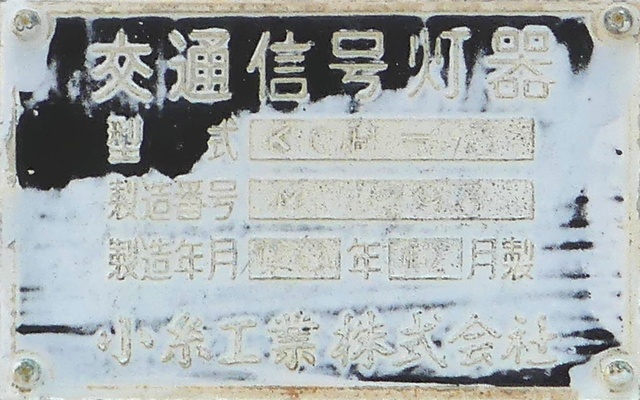 交通信号灯器
型式
製造番号
製造年月 年 月製
小糸工業株式会社